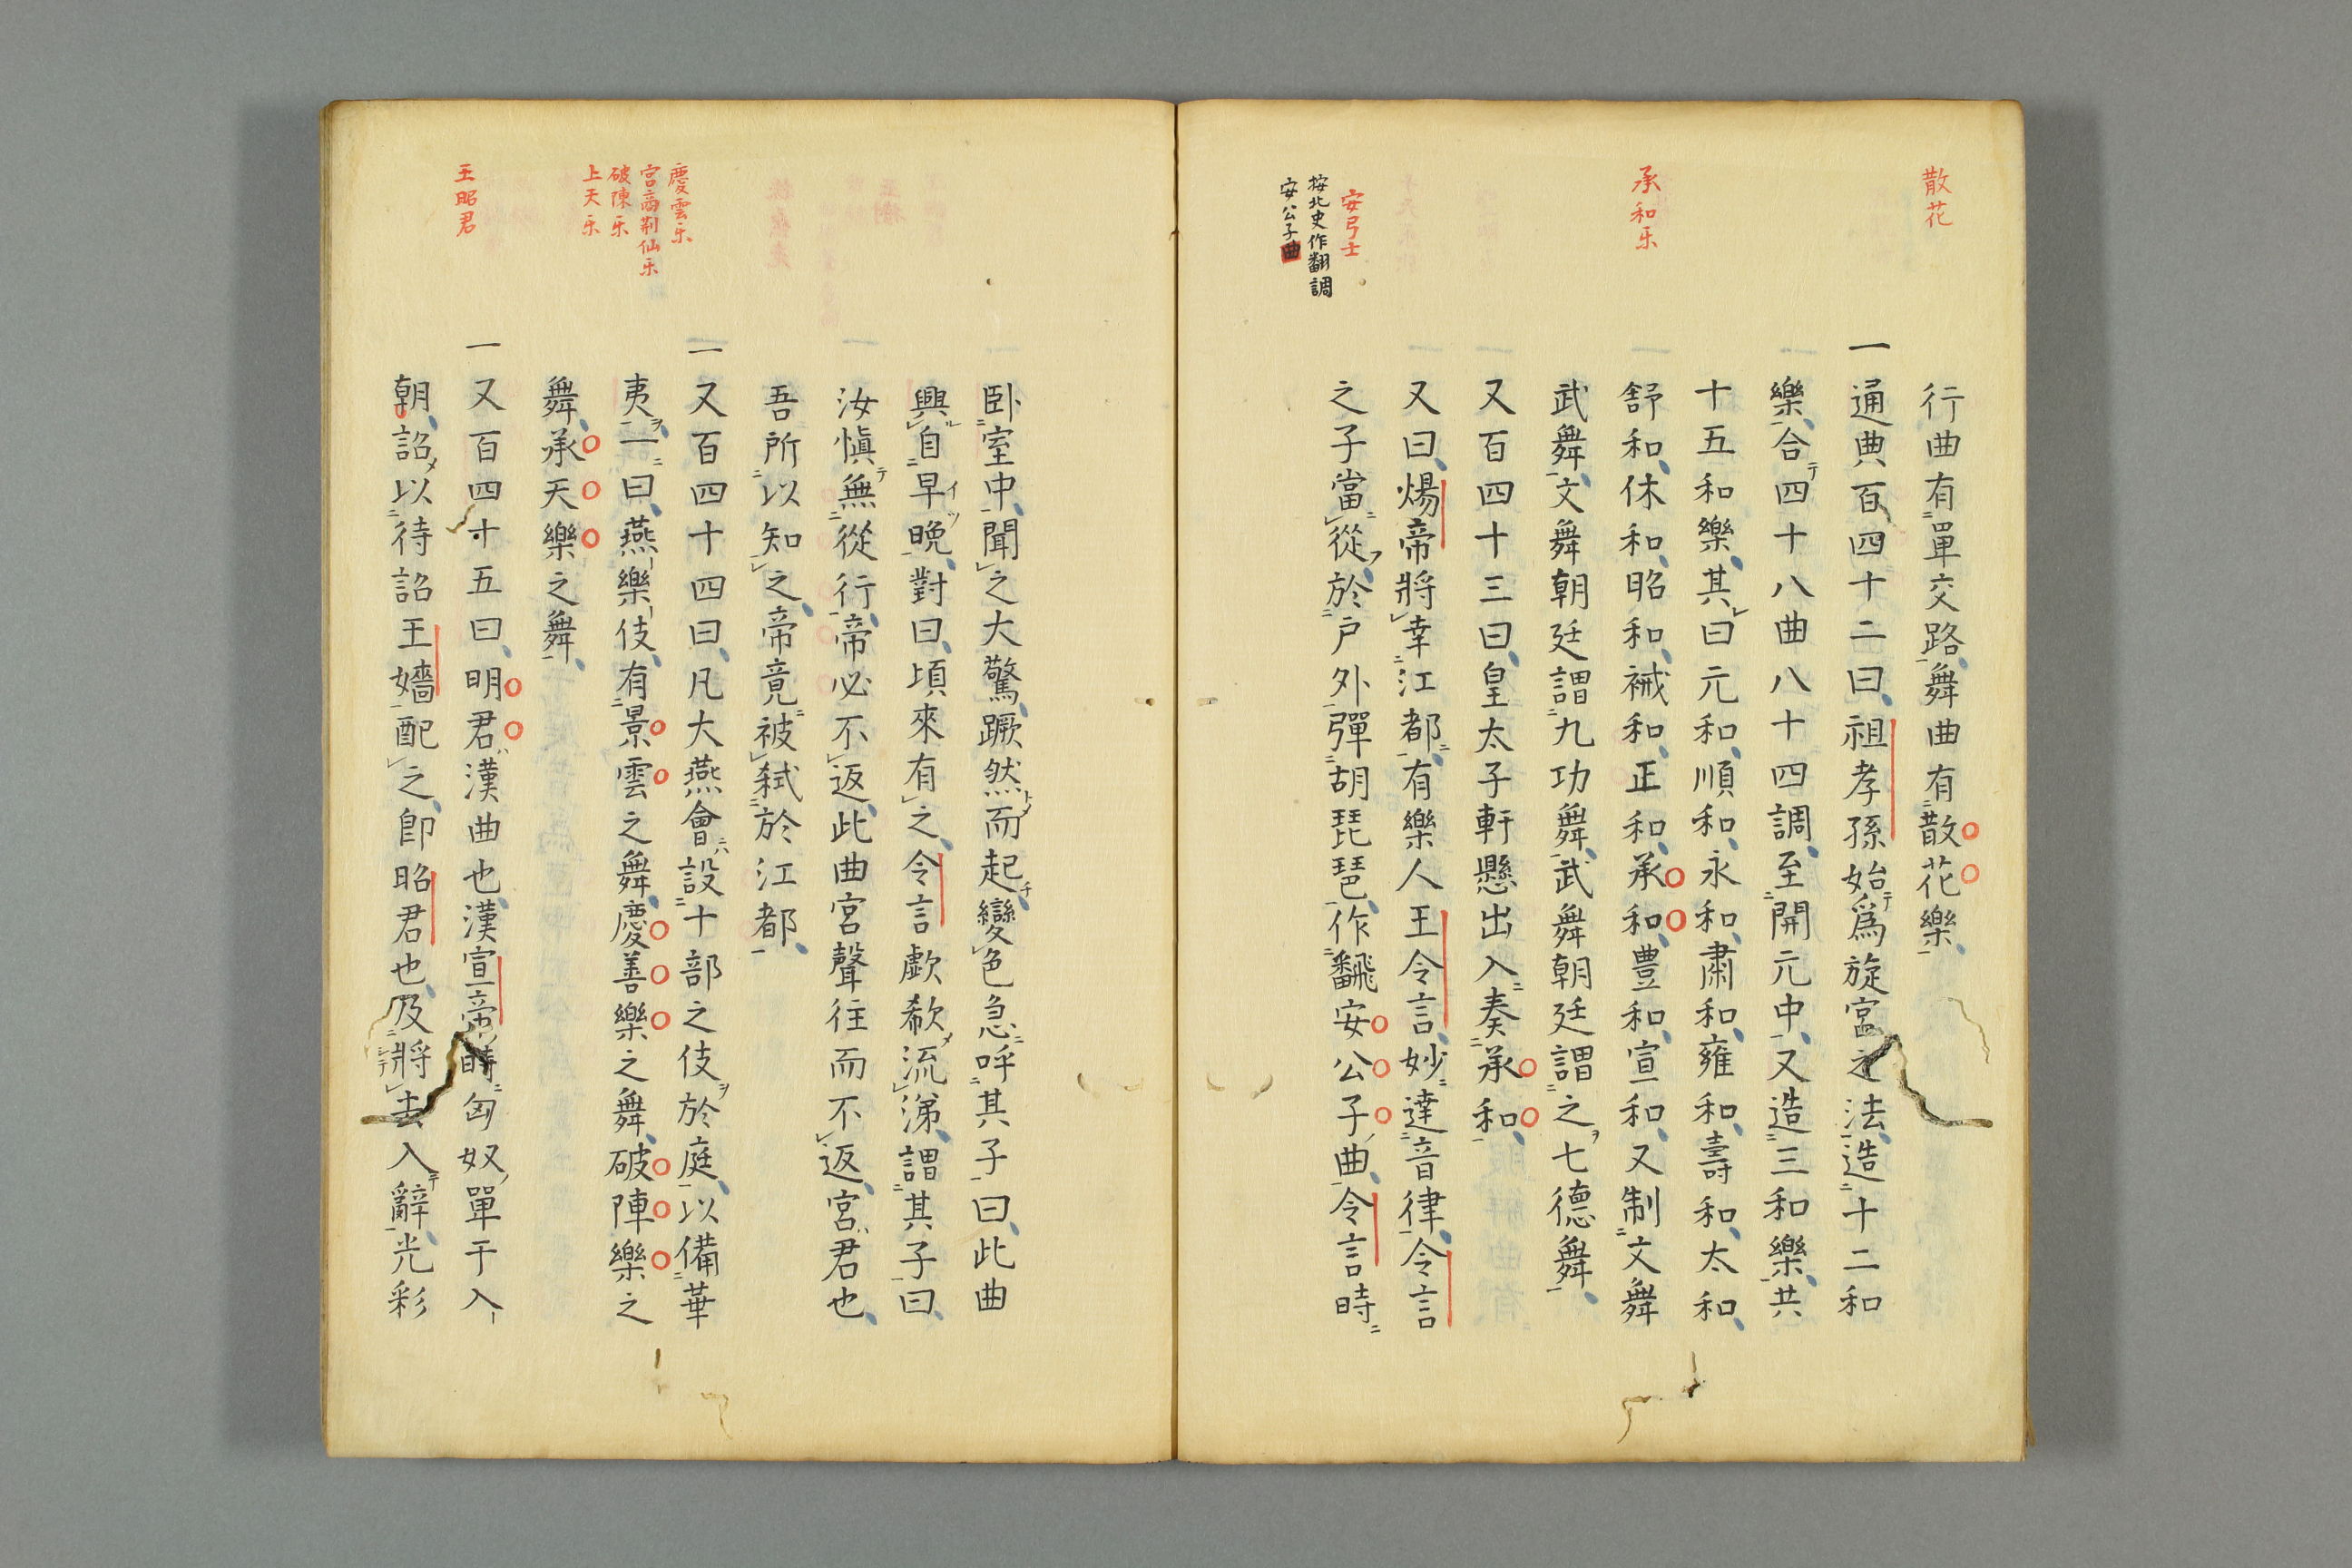 散花
承和乐
安弓士
按北史作翻調
安公子曲
行曲有單交路舞曲有散花樂
一通典百四十二曰祖孝孫始爲旋宮之法造十二和
樂合四十八曲八十四調至開元中又造三和樂共
十五和樂其曰元和順和永和肅和雍和壽和太和
舒和休和昭和祴和正和承和豊和宣和又制文舞
武舞文舞朝廷謂九功舞武舞朝廷謂之七德舞
又百四十三曰皇太子軒懸出入奏承和
又曰煬帝將幸江都有樂人王令言妙達音律令言
之子當從於戸外彈胡琵琶作飜安公子曲令言時
慶雲乐
宮商荊仙乐
破陳乐
上天乐
王昭君
卧室中聞之大驚蹶然而起變色急呼其子曰此曲
興自早晩對曰頃來有之令言歔欷流涕謂其子曰
汝愼無從行帝必不返此曲宮聲往而不返宮君也
吾所以知之帝竟被弑於江都
一又百四十四曰凡大燕會設十部之伎於庭以備華
夷一曰燕樂伎有景雲之舞慶善樂之舞破陣樂之
舞承天樂之舞
一又百四十五曰明君漢曲也漢宣帝時匈奴單于入
朝詔以待詔王嬙配之卽昭君也及將去入辭光彩